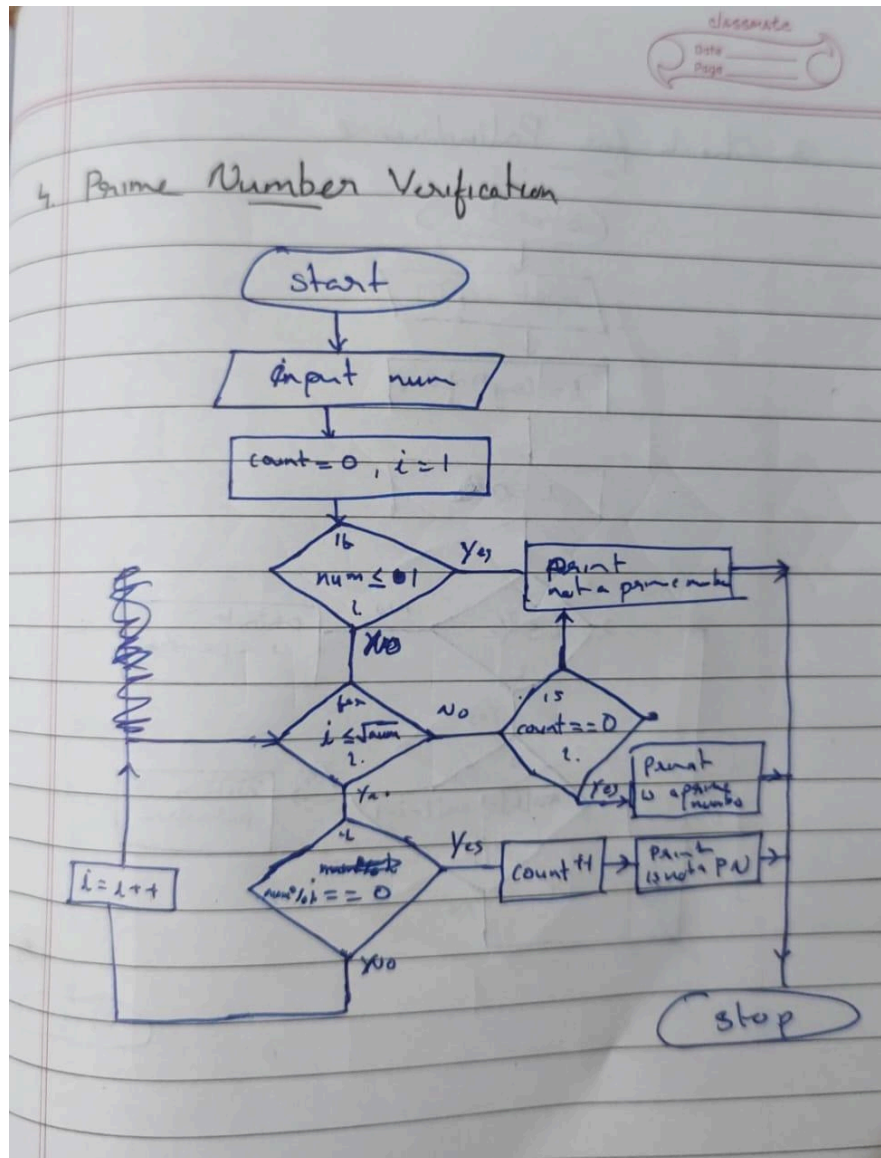 classmate
Date
Page
4. Prime Number Verification
start
input num
count = 0, i = 1
is
num ≤ 1
?
Yes
print
not a prime number
No
for
i ≤ √num
?
No
is
count == 0
?
Yes
Print
is a prime
number
Yes
num % i == 0
Yes
count ++
Print
is not a PN
i = i++
No
stop